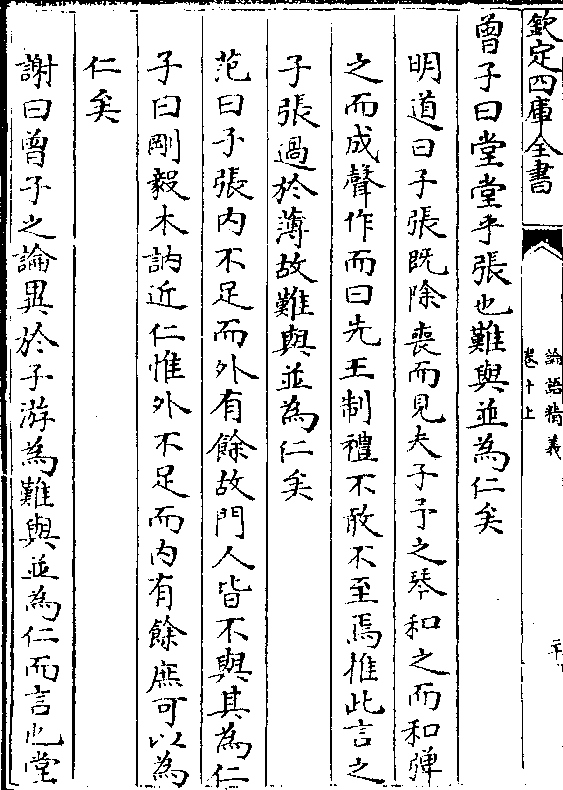 欽定四庫全書
論語精義
卷十上
曾子曰堂堂乎張也難與並為仁矣
明道曰子張既除喪而見夫子予之琴和之而和彈
之而成聲作而曰先王制禮不敢不至焉推此言之
子張過於薄故難與並為仁矣
范曰子張內不足而外有餘故門人皆不與其為仁
子曰剛毅木訥近仁惟外不足而內有餘庶可以為
仁矣
謝曰曾子之論異於子游為難與並為仁而言也堂